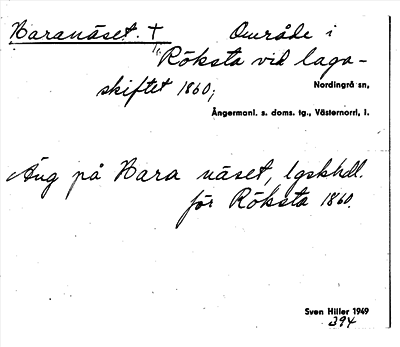 Baranäset. † Område i
Röksta vid laga-
skiftet 1860;
Nordingrå sn,
Ångermanl. s. doms. tg., Västernorrl. l.
Äng på Bara näset, lgskhdl.
för Röksta 1860.
Sven Hiller 1949
394